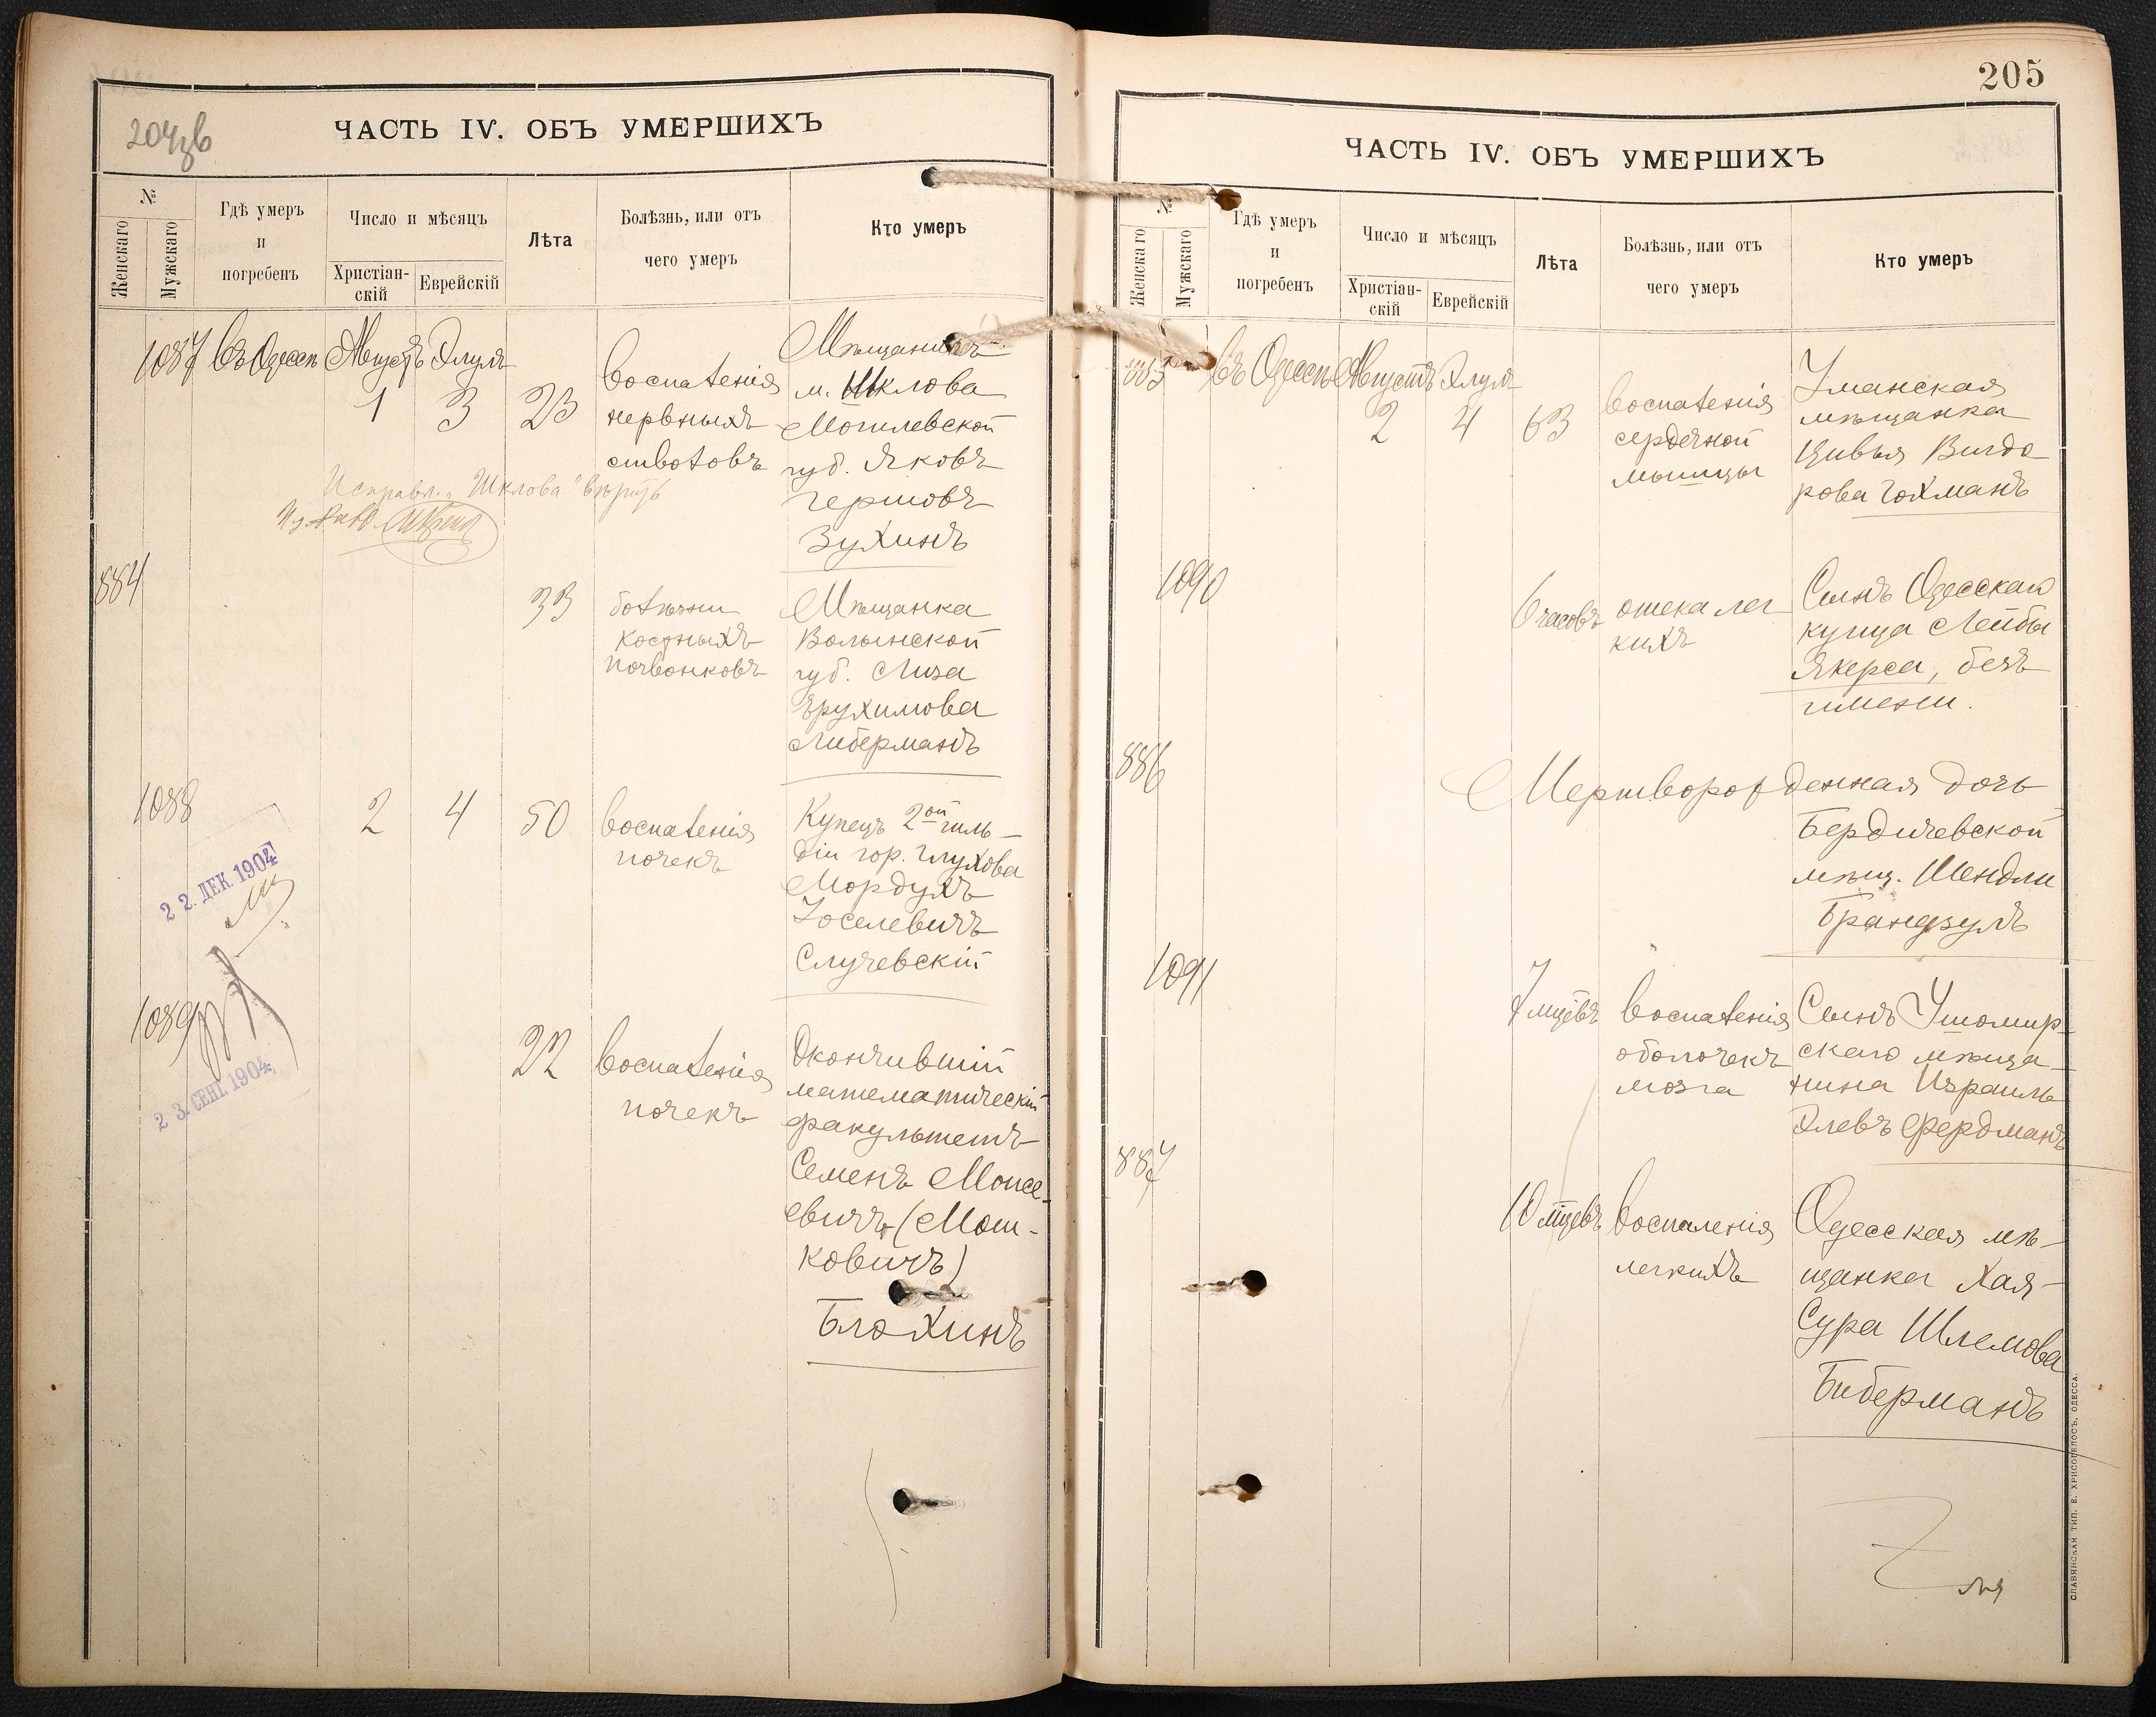 204 зв
ЧАСТЬ IV. ОБЪ УМЕРШИХЪ
№
Женскаго
Мужскаго
Гдѣ умеръ
и
погребенъ
Число и мѣсяцъ
Христіан-
скій
Еврейскій
Лѣта
Болѣзнь, или отъ
чего умеръ
Кто умеръ
1087 Въ Одессѣ Августъ Элулъ
1 3 23
воспаленія
нервныхъ
стволовъ
Мѣщанинъ
м. Шклова
Могилевской
губ. Яковъ
Гершовъ
Зухинъ
Исправл. „Шклова" вѣрить.
884
33
болѣзни
костныхъ
позвонковъ
Мѣщанка
Волынской
губ. Лиза
Ерухимова
Либерманъ
1088
2 4 50
воспаленія
почекъ
Купецъ 2ой гиль-
діи гор. Глухова
Мордухъ
Іоселевичъ
Случевскій
22. ДЕК. 1904
1089
22
воспаленія
почекъ
Окончившій
математическій
факультетъ
Семенъ Моисе-
евичъ (Мош-
ковичъ)
Блохинъ
23. СЕН. 1904
205
ЧАСТЬ IV. ОБЪ УМЕРШИХЪ
№
Женскаго
Мужскаго
Гдѣ умеръ
и
погребенъ
Число и мѣсяцъ
Христіан-
скій
Еврейскій
Лѣта
Болѣзнь, или отъ
чего умеръ
Кто умеръ
885 Въ Одессѣ Августъ Элулъ
2 4 63
воспаленія
сердечной
мышцы
Уманская
мѣщанка
Цивья Вигдо-
рова Гохманъ
1090
6 часовъ
отека лег-
кихъ
Сынъ Одесскаго
купца Лейбы
Якерса, безъ
имени.
886
Мертворожденная дочь
Бердичевской
мѣщ. Шендли
Брандзулъ
1091
7 мцевъ
воспаленія
оболочекъ
мозга
Сынъ Ушомир-
скаго мѣща-
нина Израиль
Элевъ Фердманъ
887
10 мцевъ
воспаленія
легкихъ
Одесская мѣ-
щанка Хая-
Сура Шлемова
Биберманъ
СЛАВЯНСКАЯ ТИП. Е. ХРИСОГЕЛОСЪ, ОДЕССА.